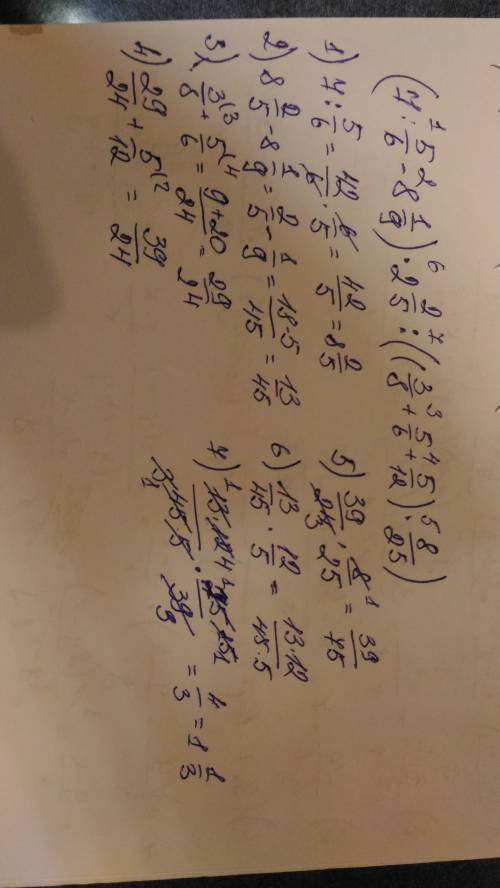 (7 : 5/6 - 8 1/9) · 2 2/5 : ((3/8 + 5/6 + 5/12) · 8/25)
1) 7 : 5/6 = 42/6 · 6/5 = 42/5 = 8 2/5
2) 8 2/5 - 8 1/9 = 2/5 - 1/9 = 18·5/45 = 13/45
3) 3/8 + 5/6 = 9+20/24 = 29/24
4) 29/24 + 5/12 = 39/24
5) 39/24 · 8/25 = 39/75
6) 13/45 · 12/5 = 13·12/45·5
7) 13·12/45·5 · 75/39 = 4/3 = 1 1/3